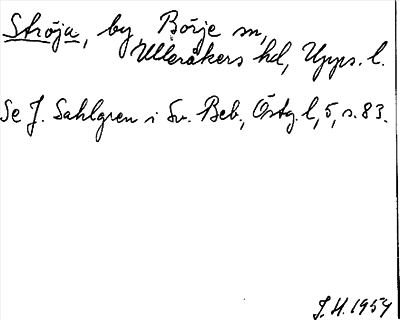 Ströja, by Börje sn,
Ulleråkers hd, Upps. l.
Se J. Sahlgren i Sv. Beb., Östg. l, 5, s. 83.
J. H. 1954